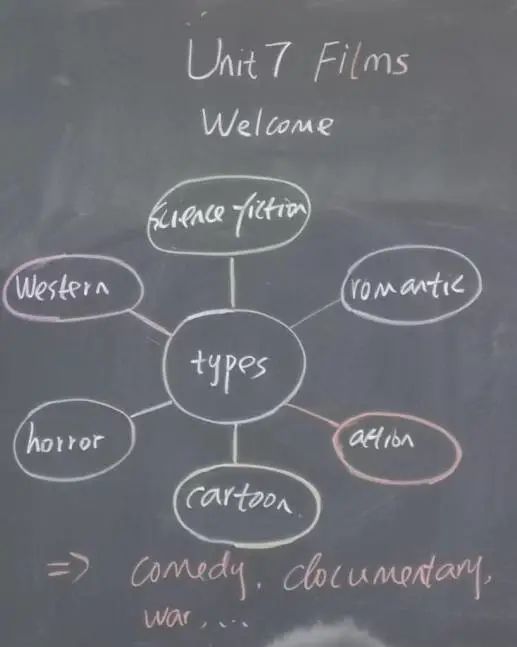 Unit 7 Films
Welcome
science fiction
Western
romantic
types
horror
action
cartoon
=> comedy, documentary,
war, ...